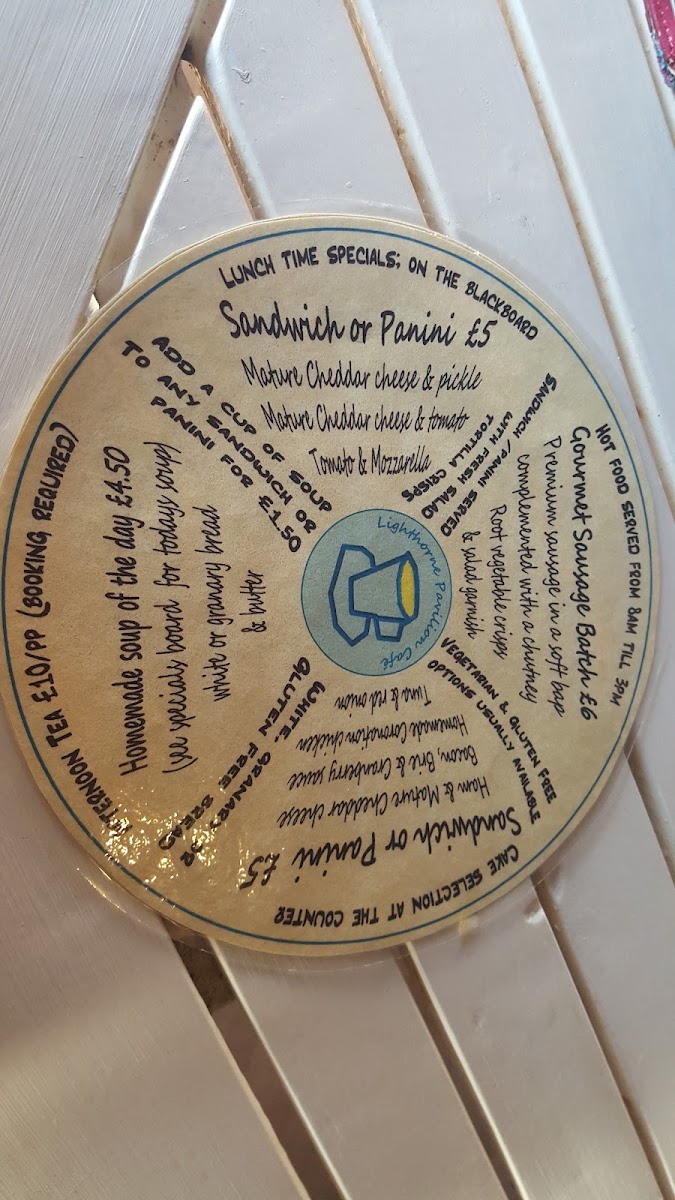 LUNCH TIME SPECIALS; ON THE BLACKBOARD
Sandwich or Panini £5
Mature Cheddar cheese & pickle
Mature Cheddar cheese & tomato
Tomato & Mozzarella
SANDWICH / PANINI SERVED
WITH FRESH SALAD
TORTILLA CRISPS
HOT FOOD SERVED FROM 8AM TILL 3PM
Gourmet Sausage Batch £6
Premium sausage in a soft bap
complemented with a chutney
Root vegetable crisps
& salad garnish
VEGETARIAN & GLUTEN FREE
OPTIONS USUALLY AVAILABLE
CAKE SELECTION AT THE COUNTER
Sandwich or Panini £5
Ham & Mature Cheddar cheese
Bacon, Brie & Cranberry sauce
Homemade Coronation chicken
Tuna & red onion
WHITE, GRANARY OR
GLUTEN FREE BREAD
AFTERNOON TEA £10/PP (BOOKING REQUIRED)
Homemade soup of the day £4.50
(see specials board for todays soup)
white or granary bread
& butter
ADD A CUP OF SOUP
TO ANY SANDWICH OR
PANINI FOR £1.50
Lighthorne Pavilion Café